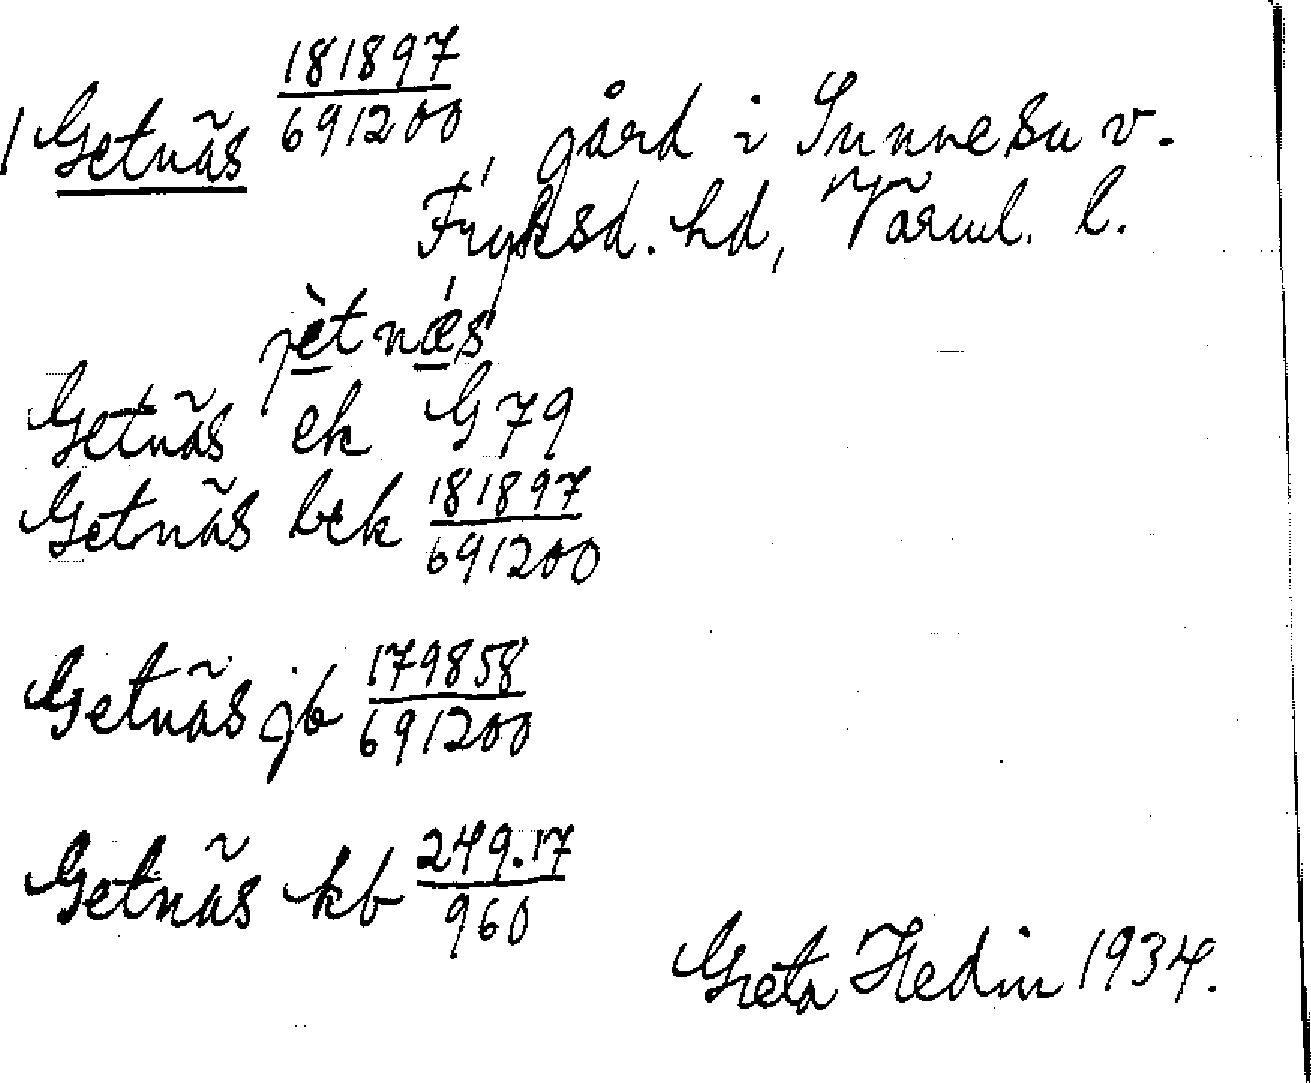 1 Getnäs 181897/691200, gård i Sunne su v.
Fryksd. hd, Värml. l.
jètnǽs
Getnäs ek G 79
Getnäs bek 181897/691200
Getnäs jb 179858/691200
Getnäs kb 249.17/960
Greta Hedin 1934.